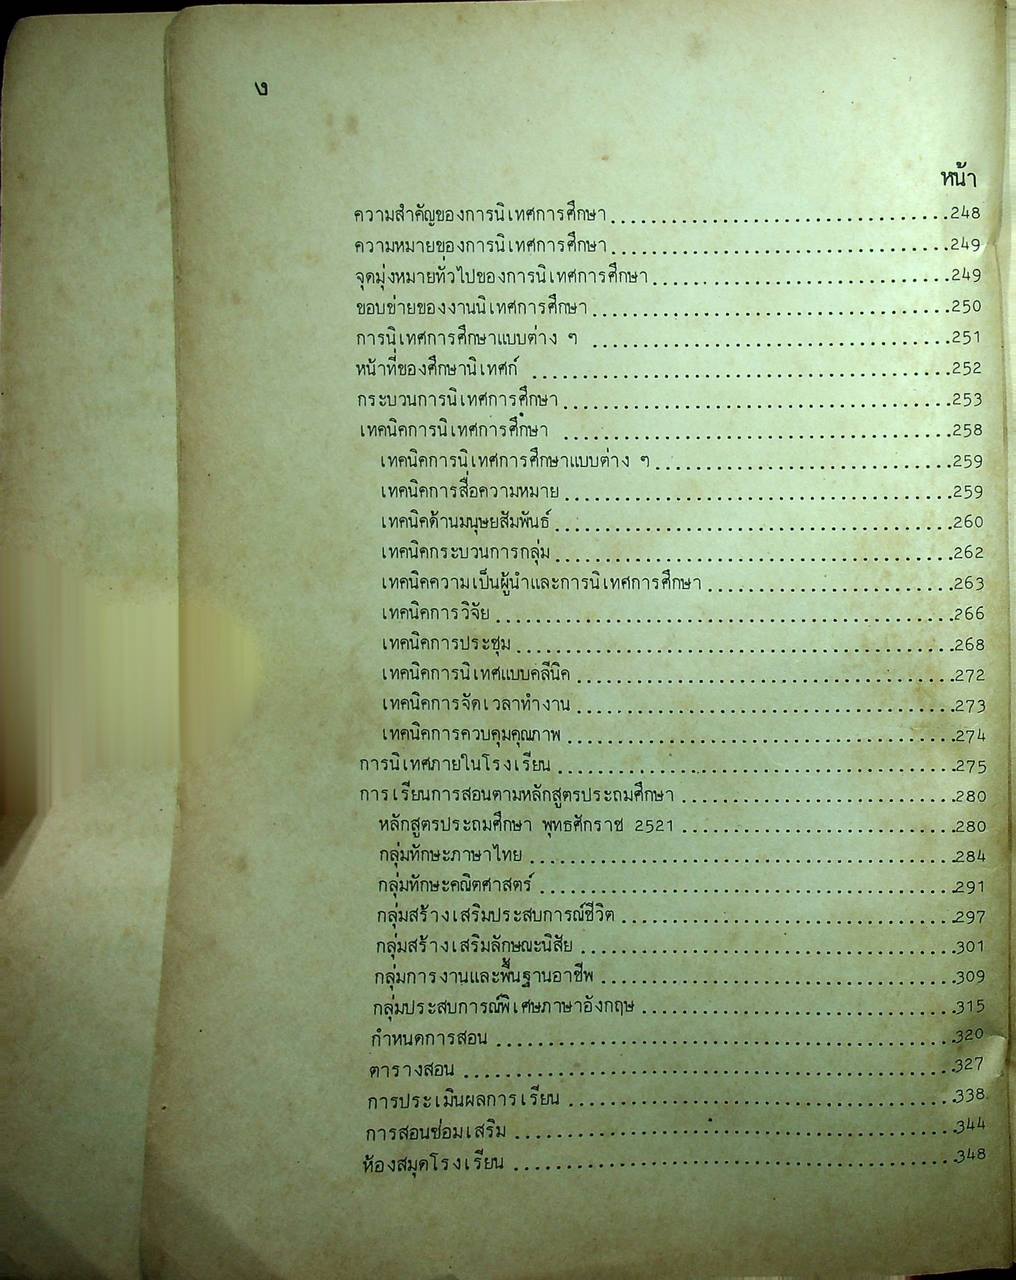 ง
หน้า
ความสำคัญของการนิเทศการศึกษา................................248
ความหมายของการนิเทศการศึกษา................................249
จุดมุ่งหมายทั่วไปของการนิเทศการศึกษา............................249
ขอบข่ายของงานนิเทศการศึกษา..................................250
การนิเทศการศึกษาแบบต่าง ๆ ..................................251
หน้าที่ของศึกษานิเทศก์ ........................................252
กระบวนการนิเทศการศึกษา.....................................253
เทคนิคการนิเทศการศึกษา .....................................258
เทคนิคการนิเทศการศึกษาแบบต่าง ๆ............................259
เทคนิคการสื่อความหมาย.....................................259
เทคนิคด้านมนุษยสัมพันธ์......................................260
เทคนิคกระบวนการกลุ่ม......................................262
เทคนิคความเป็นผู้นำและการนิเทศการศึกษา........................263
เทคนิคการวิจัย............................................266
เทคนิคการประชุม..........................................268
เทคนิคการนิเทศแบบคลีนิค....................................272
เทคนิคการจัดเวลาทำงาน....................................273
เทคนิคการควบคุมคุณภาพ.....................................274
การนิเทศภายในโรงเรียน......................................275
การเรียนการสอนตามหลักสูตรประถมศึกษา..........................280
หลักสูตรประถมศึกษา พุทธศักราช 2521..........................280
กลุ่มทักษะภาษาไทย.........................................284
กลุ่มทักษะคณิตศาสตร์........................................291
กลุ่มสร้างเสริมประสบการณ์ชีวิต................................297
กลุ่มสร้างเสริมลักษณะนิสัย....................................301
กลุ่มการงานและพื้นฐานอาชีพ..................................309
กลุ่มประสบการณ์พิเศษภาษาอังกฤษ..............................315
กำหนดการสอน............................................320
ตารางสอน...............................................327
การประเมินผลการเรียน.....................................338
การสอนซ่อมเสริม..........................................344
ห้องสมุดโรงเรียน..........................................348